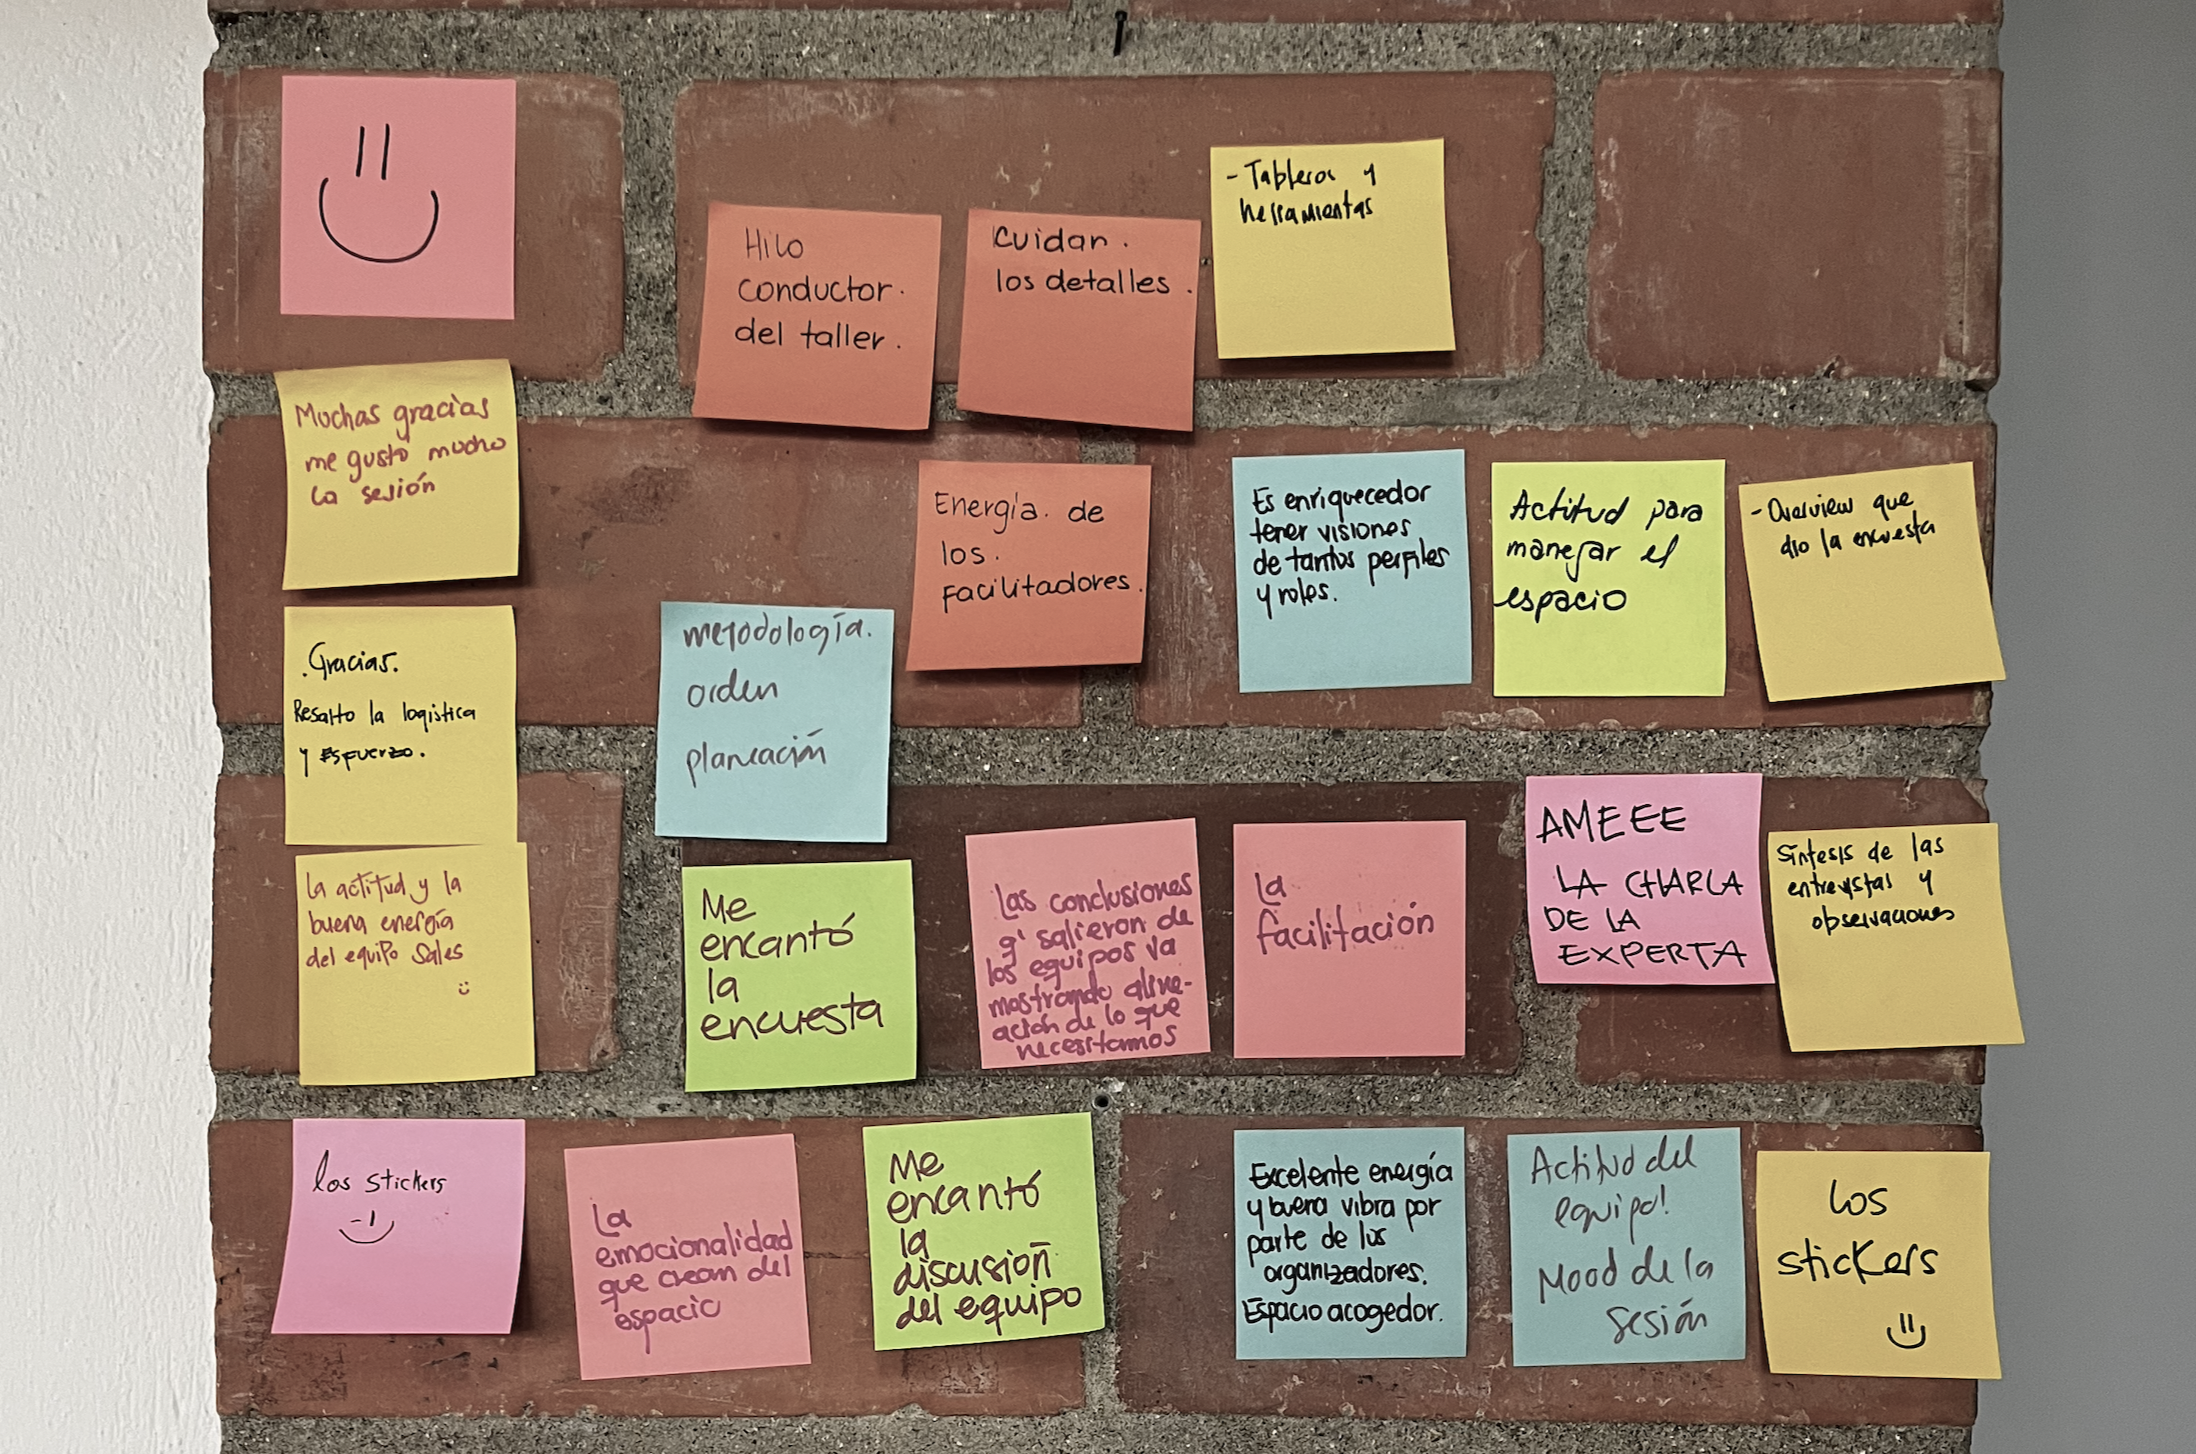 Hilo
conductor.
del taller.
Cuidar.
los detalles.
- Tableros y
herramientas
Muchas gracias
me gusto mucho
la sesión
Energía. de
los.
facilitadores.
Es enriquecedor
tener visiones
de tantos perfiles
y roles.
Actitud para
manejar el
espacio
- Overview que
dio la encuesta
.Gracias.
Resalto la logistica
y Esfuerzo.
metodología.
orden
planeación
La actitud y la
buena energía
del equipo Sales
Me
encantó
la
encuesta
Las conclusiones
q' salieron de
los equipos va
mostrando aline-
ación de lo que
necesitamos
La
facilitación
AMEEE
LA CHARLA
DE LA
EXPERTA
Síntesis de las
entrevistas y
observaciones
los stickers
La
emocionalidad
que crean del
espacio
Me
encantó
la
discusión
del equipo
Excelente energía
y buena vibra por
parte de los
organizadores.
Espacio acogedor.
Actitud del
equipo!
Mood de la
sesión
Los
stickers